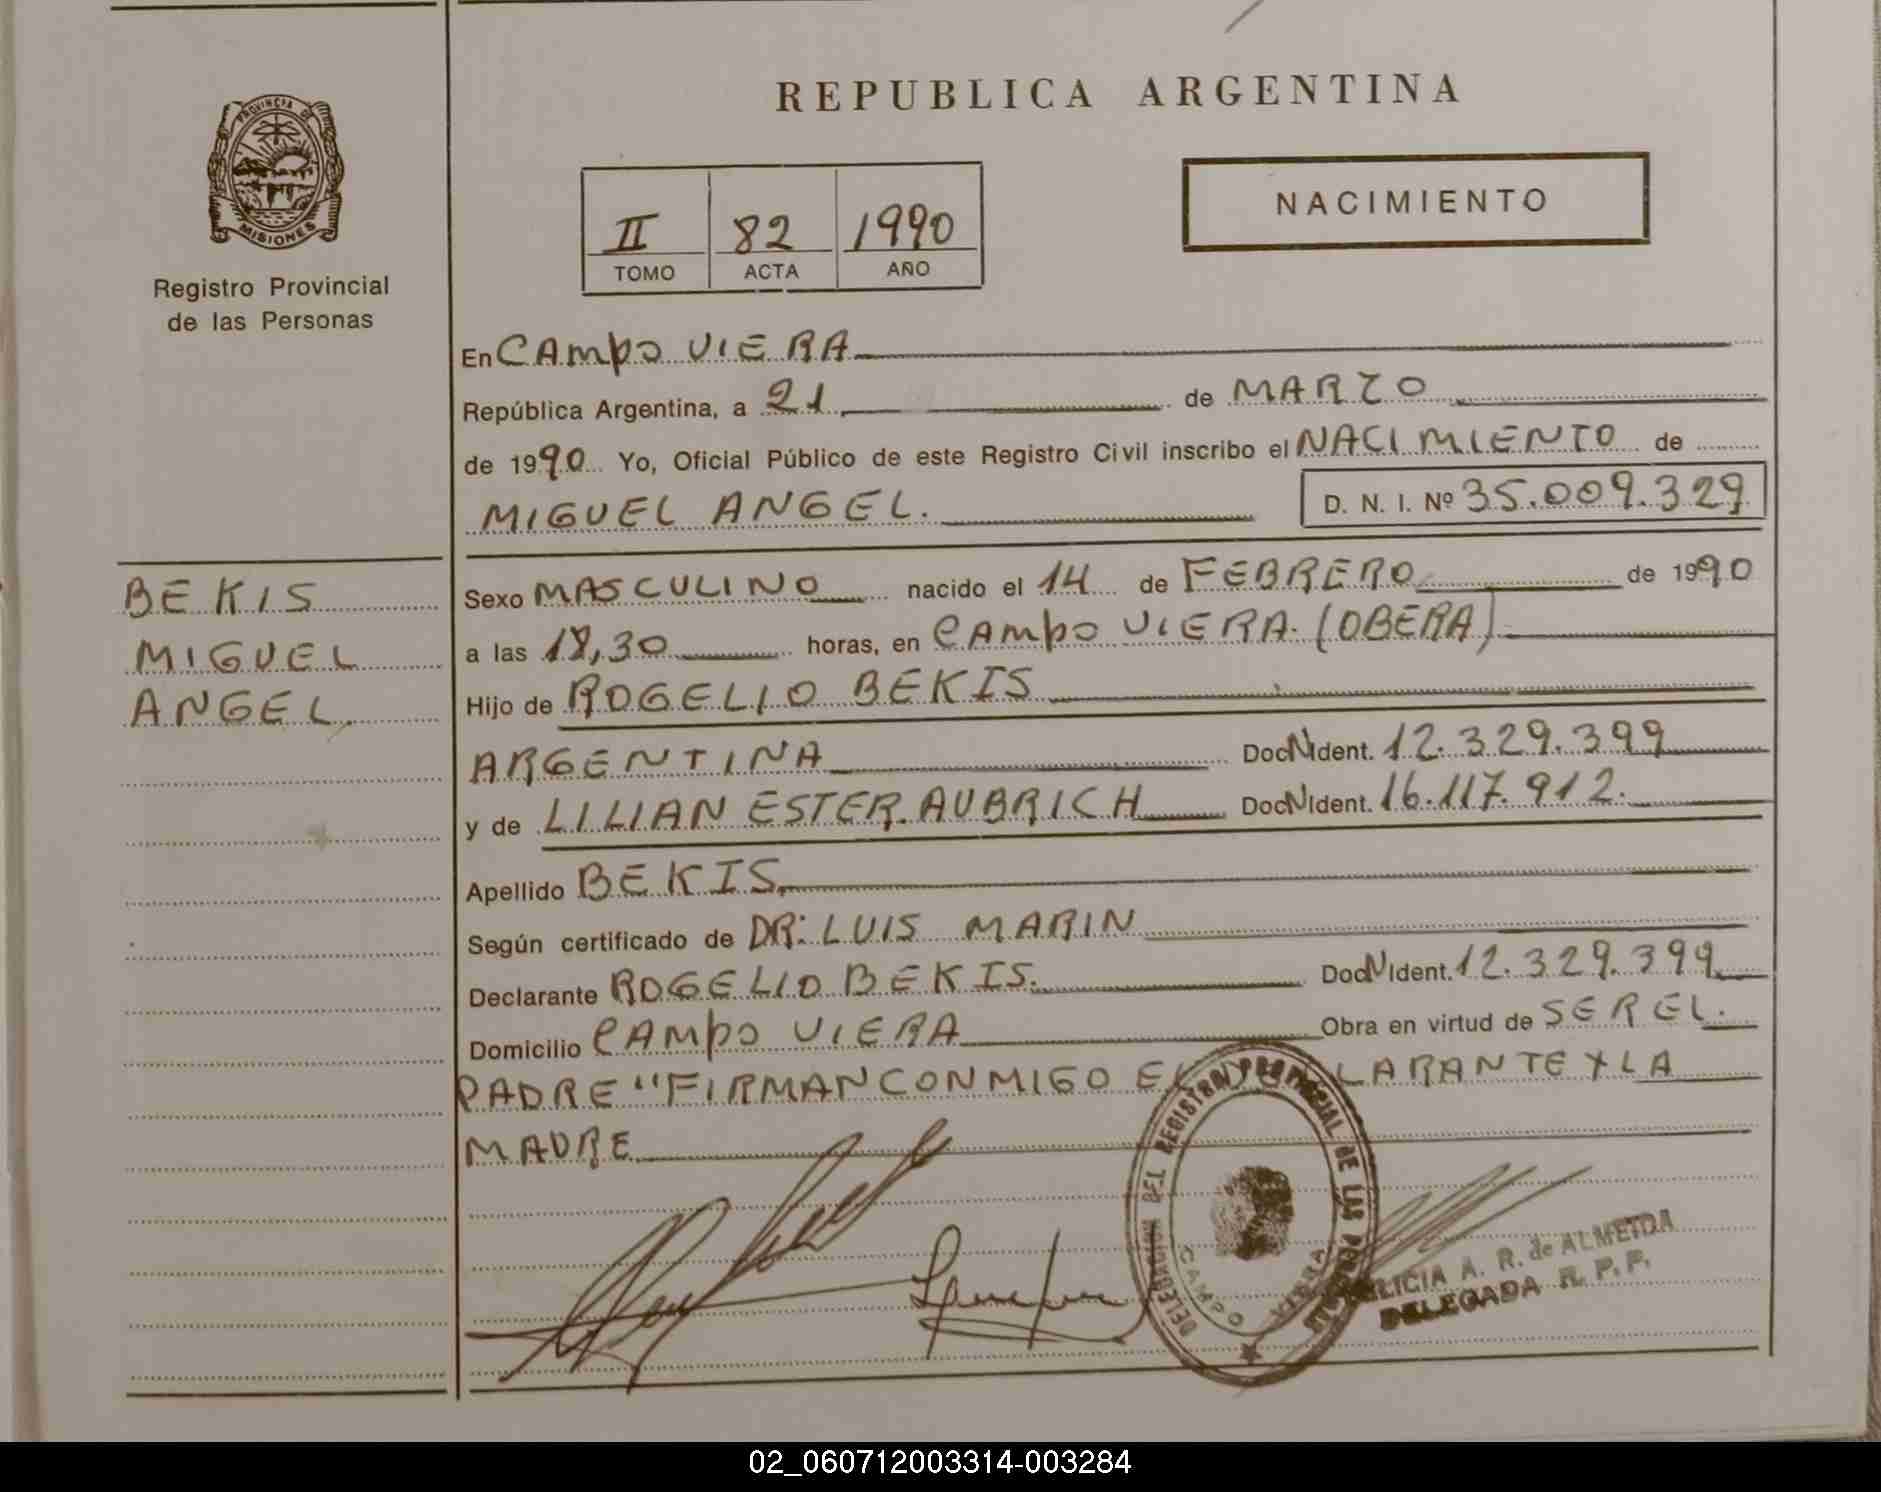 PROVINCIA DE
MISIONES
Registro Provincial
de las Personas
BEKIS
MIGUEL
ANGEL.
REPUBLICA ARGENTINA
II 82 1990
TOMO ACTA AÑO
NACIMIENTO
En CAMPO VIERA
República Argentina, a 21 de MARZO
de 1990 Yo, Oficial Público de este Registro Civil inscribo el NACIMIENTO de
MIGUEL ANGEL. D. N. I. Nº 35.009.329
Sexo MASCULINO nacido el 14 de FEBRERO de 1990
a las 18,30 horas, en CAMPO VIERA. (OBERA)
Hijo de ROGELIO BEKIS
ARGENTINA Doc N Ident. 12.329.399
y de LILIAN ESTER AUBRICH Doc N Ident. 16.117.912.
Apellido BEKIS
Según certificado de DR: LUIS MARIN
Declarante ROGELIO BEKIS. Doc N Ident. 12.329.399
Domicilio CAMPO VIERA Obra en virtud de SER EL.
PADRE "FIRMAN CONMIGO EL DECLARANTE Y LA
MADRE
DELEGACION DEL REGISTRO PROVINCIAL DE LAS PERSONAS
CAMPO VIERA
ALICIA A. R. de ALMEIDA
DELEGADA R. P. P.
02_060712003314-003284